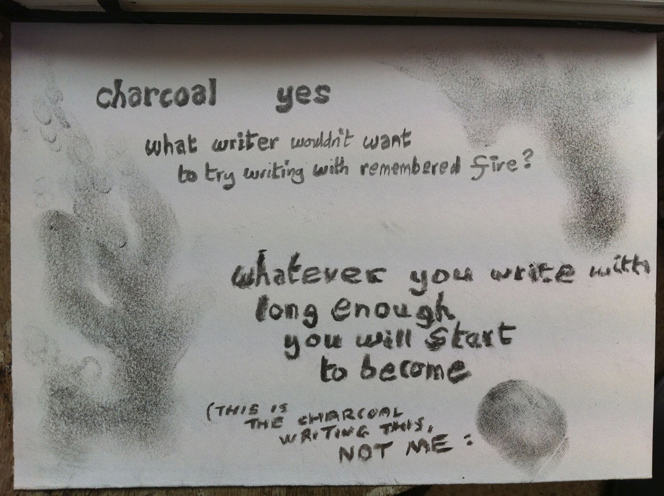 charcoal yes
what writer wouldn't want
to try writing with remembered fire?
whatever you write with
long enough
you will start
to become
(THIS IS
THE CHARCOAL
WRITING THIS,
NOT ME :